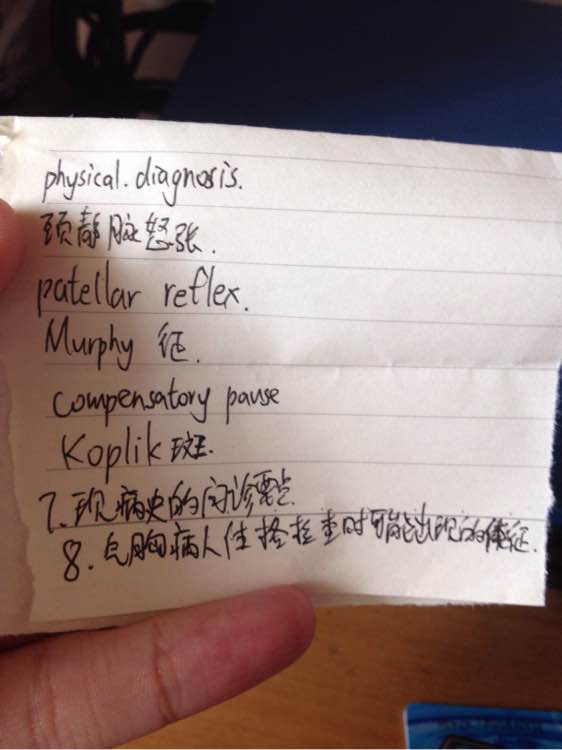 physical.diagnosis.
颈静脉怒张.
patellar reflex.
Murphy 征.
compensatory pause
Koplik 斑.
7.现病史的问诊要点.
8.气胸病人体格检查时可能出现的体征.